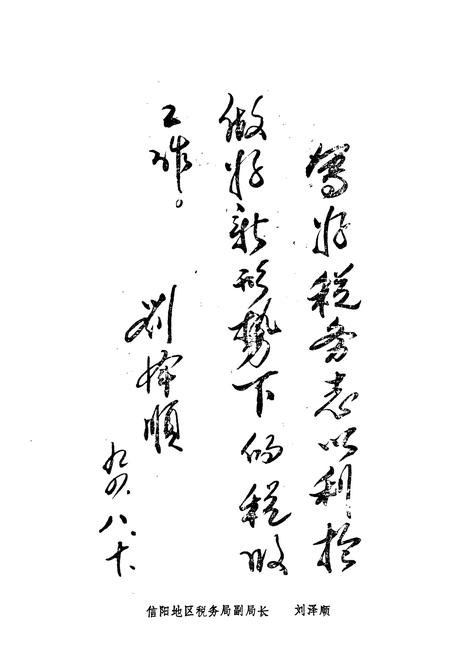 写好税务志以利于
做好新形势下的税收
工作。
刘泽顺
九四.八.十.
信阳地区税务局副局长 刘泽顺